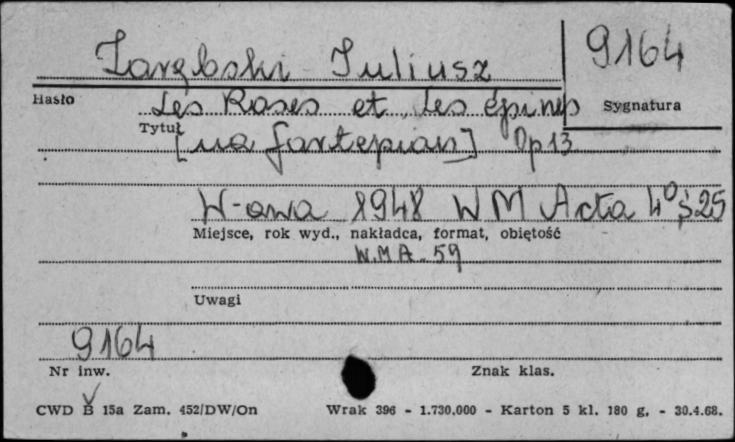 Zarębski Juliusz 9164
Hasło Les Roses et les épines Sygnatura
Tytuł [na fortepian] Op 13
W-awa 1948 WM Acta 4° s 25
Miejsce, rok wyd., nakładca, format, obiętość
W.M.A. 59
Uwagi
9164
Nr inw. Znak klas.
CWD B 15a Zam. 452/DW/On Wrak 396 - 1.730.000 - Karton 5 kl. 180 g. - 30.4.68.